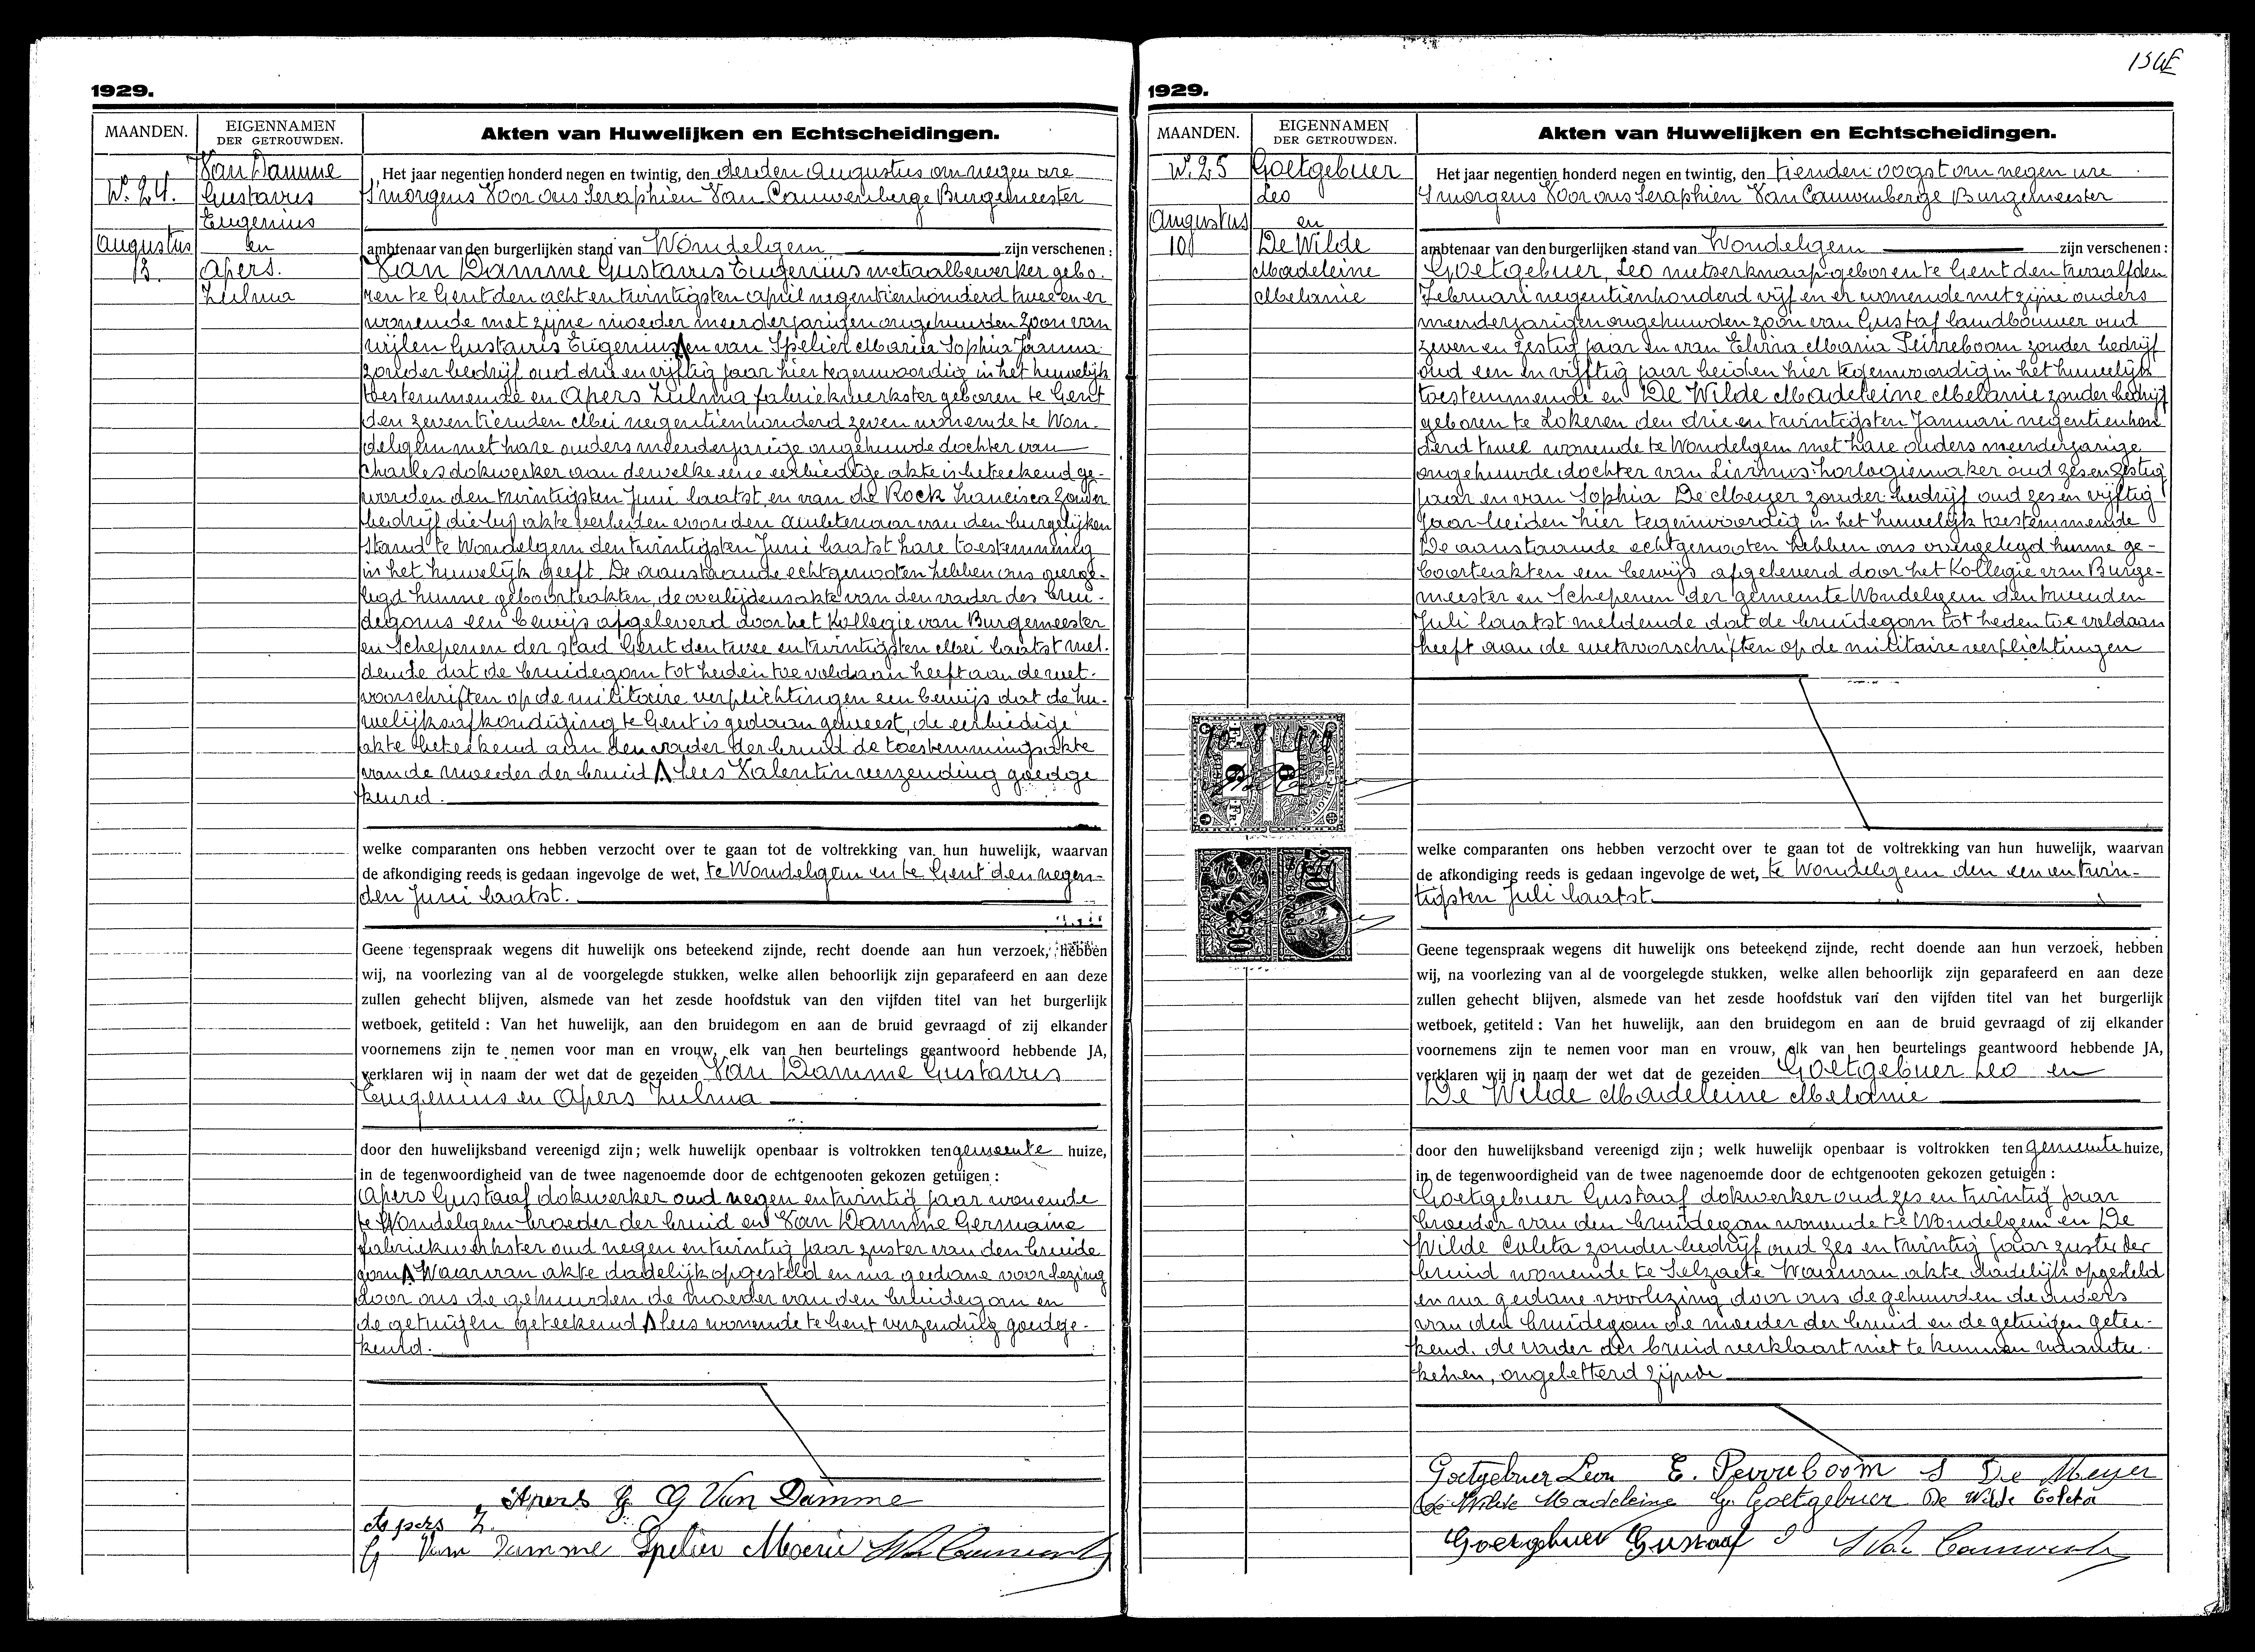 1929.
MAANDEN.
EIGENNAMEN
DER GETROUWDEN.
Akten van Huwelijken en Echtscheidingen.
N. 24.
Augustus
3.
Van Damme
Gustavus
Eugenius
en
Apers.
Zulma
Het jaar negentien honderd negen en twintig, den derden Augustus om negen ure
's morgens Voor ons Seraphien Van Cauwenberge Burgemeester
ambtenaar van den burgerlijken stand van Wondelgem zijn verschenen :
Van Damme Gustavus Eugenius metaalbewerker gebo-
ren te Gent den acht en twintigsten april negentienhonderd twee en er
wonende met zijne moeder meerderjarigen ongehuwden zoon van
wijlen Gustavus Eugenius en van Spelier Maria Sophia Joanna
zonder bedrijf oud drie en vijftig jaar hier tegenwoordig in het huwelijk
toestemmende en Apers Zulma fabriekwerkster geboren te Gent
den zeventienden Mei negentienhonderd zeven wonende te Won-
delgem met hare ouders meerderjarige ongehuwde dochter van
Charles dokwerker aan dewelke eene eerbiedige akte is beteekend ge-
worden den twintigsten Juni laatst en van de Kock Francisca zonder
bedrijf die bij akte verleden voor den ambtenaar van den burgelijken
stand te Wondelgem den twintigsten Juni laatst hare toestemming
in het huwelijk geeft. De aanstaande echtgenooten hebben ons overge-
legd hunne geboorteakten, de overlijdensakte van den vader des brui-
degoms een bewijs afgeleverd door het Kollegie van Burgemeester
en Schepenen der stad Gent den twee en twintigsten Mei laatst mel-
dende dat de bruidegom tot heden toe voldaan heeft aan de wet-
voorschriften op de militaire verplichtingen een bewijs dat de hu-
welijksafkondiging te Gent is gedaan geweest, de eerbiedige
akte beteekend aan den vader der bruid de toestemmingsakte
van de moeder der bruid Λ lees Valentin verzending goedge
keurd.
welke comparanten ons hebben verzocht over te gaan tot de voltrekking van hun huwelijk, waarvan
de afkondiging reeds is gedaan ingevolge de wet, te Wondelgem en te Gent den negen-
den Juni laatst.
Geene tegenspraak wegens dit huwelijk ons beteekend zijnde, recht doende aan hun verzoek, hebben
wij, na voorlezing van al de voorgelegde stukken, welke allen behoorlijk zijn geparafeerd en aan deze
zullen gehecht blijven, alsmede van het zesde hoofdstuk van den vijfden titel van het burgerlijk
wetboek, getiteld : Van het huwelijk, aan den bruidegom en aan de bruid gevraagd of zij elkander
voornemens zijn te nemen voor man en vrouw, elk van hen beurtelings geantwoord hebbende JA,
verklaren wij in naam der wet dat de gezeiden Van Damme Gustavus
Eugenius en Apers Zulma
door den huwelijksband vereenigd zijn ; welk huwelijk openbaar is voltrokken ten gemeente huize,
in de tegenwoordigheid van de twee nagenoemde door de echtgenooten gekozen getuigen :
Apers Gustaaf dokwerker oud negen en twintig jaar wonende
te Wondelgem broeder der bruid en Van Damme Germaine
fabriekwerkster oud negen en twintig jaar zuster van den bruide
gom Λ Waarvan akte dadelijk opgesteld en na gedane voorlezing
door ons de gehuwden de moeder van den bruidegom en
de getuigen geteekend Λ lees wonende te Gent verzending goedge-
keurd.
Apers G. G Van Damme
Apers Z.
G Van Damme Spelier Marie S Van Cauwenberge
154E
1929.
MAANDEN.
EIGENNAMEN
DER GETROUWDEN.
Akten van Huwelijken en Echtscheidingen.
N. 25
Augustus
10
Goetgebuer
Leo
en
De Wilde
Madeleine
Melanie
Het jaar negentien honderd negen en twintig, den tienden oogst om negen ure
's morgens Voor ons Seraphien Van Cauwenberge Burgemeester
ambtenaar van den burgerlijken stand van Wondelgem zijn verschenen :
Goetgebuer, Leo metserknaap geboren te Gent den twaalfden
Februari negentienhonderd vijf en er wonende met zijne ouders
meerderjarigen ongehuwden zoon van Gustaf landbouwer oud
zeven en zestig jaar en van Elvira Maria Peirreboom zonder bedrijf
oud een en vijftig jaar beiden hier tegenwoordig in het huwelijk
toestemmende en De Wilde Madeleine Melanie zonder bedrijf
geboren te Lokeren den drie en twintigsten Januari negentienhon
derd twee wonende te Wondelgem met hare ouders meerderjarige
ongehuwde dochter van Livinus horlogiemaker oud zes en zestig
jaar en van Sophia De Meyer zonder bedrijf oud zes en vijftig
jaar beiden hier tegenwoordig in het huwelijk toestemmende
De aanstaande echtgenooten hebben ons overgelegd hunne ge-
boorteakten een bewijs afgeleverd door het Kollegie van Burge-
meester en Schepenen der gemeente Wondelgem den tweeden
Juli laatst meldende dat de bruidegom tot heden toe voldaan
heeft aan de wetvoorschriften op de militaire verplichtingen
welke comparanten ons hebben verzocht over te gaan tot de voltrekking van hun huwelijk, waarvan
de afkondiging reeds is gedaan ingevolge de wet, te Wondelgem den een en twin-
tigsten Juli laatst.
Geene tegenspraak wegens dit huwelijk ons beteekend zijnde, recht doende aan hun verzoek, hebben
wij, na voorlezing van al de voorgelegde stukken, welke allen behoorlijk zijn geparafeerd en aan deze
zullen gehecht blijven, alsmede van het zesde hoofdstuk van den vijfden titel van het burgerlijk
wetboek, getiteld : Van het huwelijk, aan den bruidegom en aan de bruid gevraagd of zij elkander
voornemens zijn te nemen voor man en vrouw, elk van hen beurtelings geantwoord hebbende JA,
verklaren wij in naam der wet dat de gezeiden Goetgebuer Leo en
De Wilde Madeleine Melanie
door den huwelijksband vereenigd zijn ; welk huwelijk openbaar is voltrokken ten gemeente huize,
in de tegenwoordigheid van de twee nagenoemde door de echtgenooten gekozen getuigen :
Goetgebuer Gustaaf dokwerker oud zes en twintig jaar
broeder van den bruidegom wonende te Wondelgem en De
Wilde Coleta zonder bedrijf oud zes en twintig jaar zuster der
bruid wonende te Selzaete Waarvan akte dadelijk opgesteld
en na gedane voorlezing door ons de gehuwden de ouders
van den bruidegom de moeder der bruid en de getuigen getee-
kend. de vader der bruid verklaart niet te kunnen
kenen, ongeletterd zijnde
Goetgebuer Leon E. Perreboom S De Meyer
De Wilde Madeleine G. Goetgebuer De Wilde Coleta
Goetgebuer Gustaaf S Van Cauwenberge